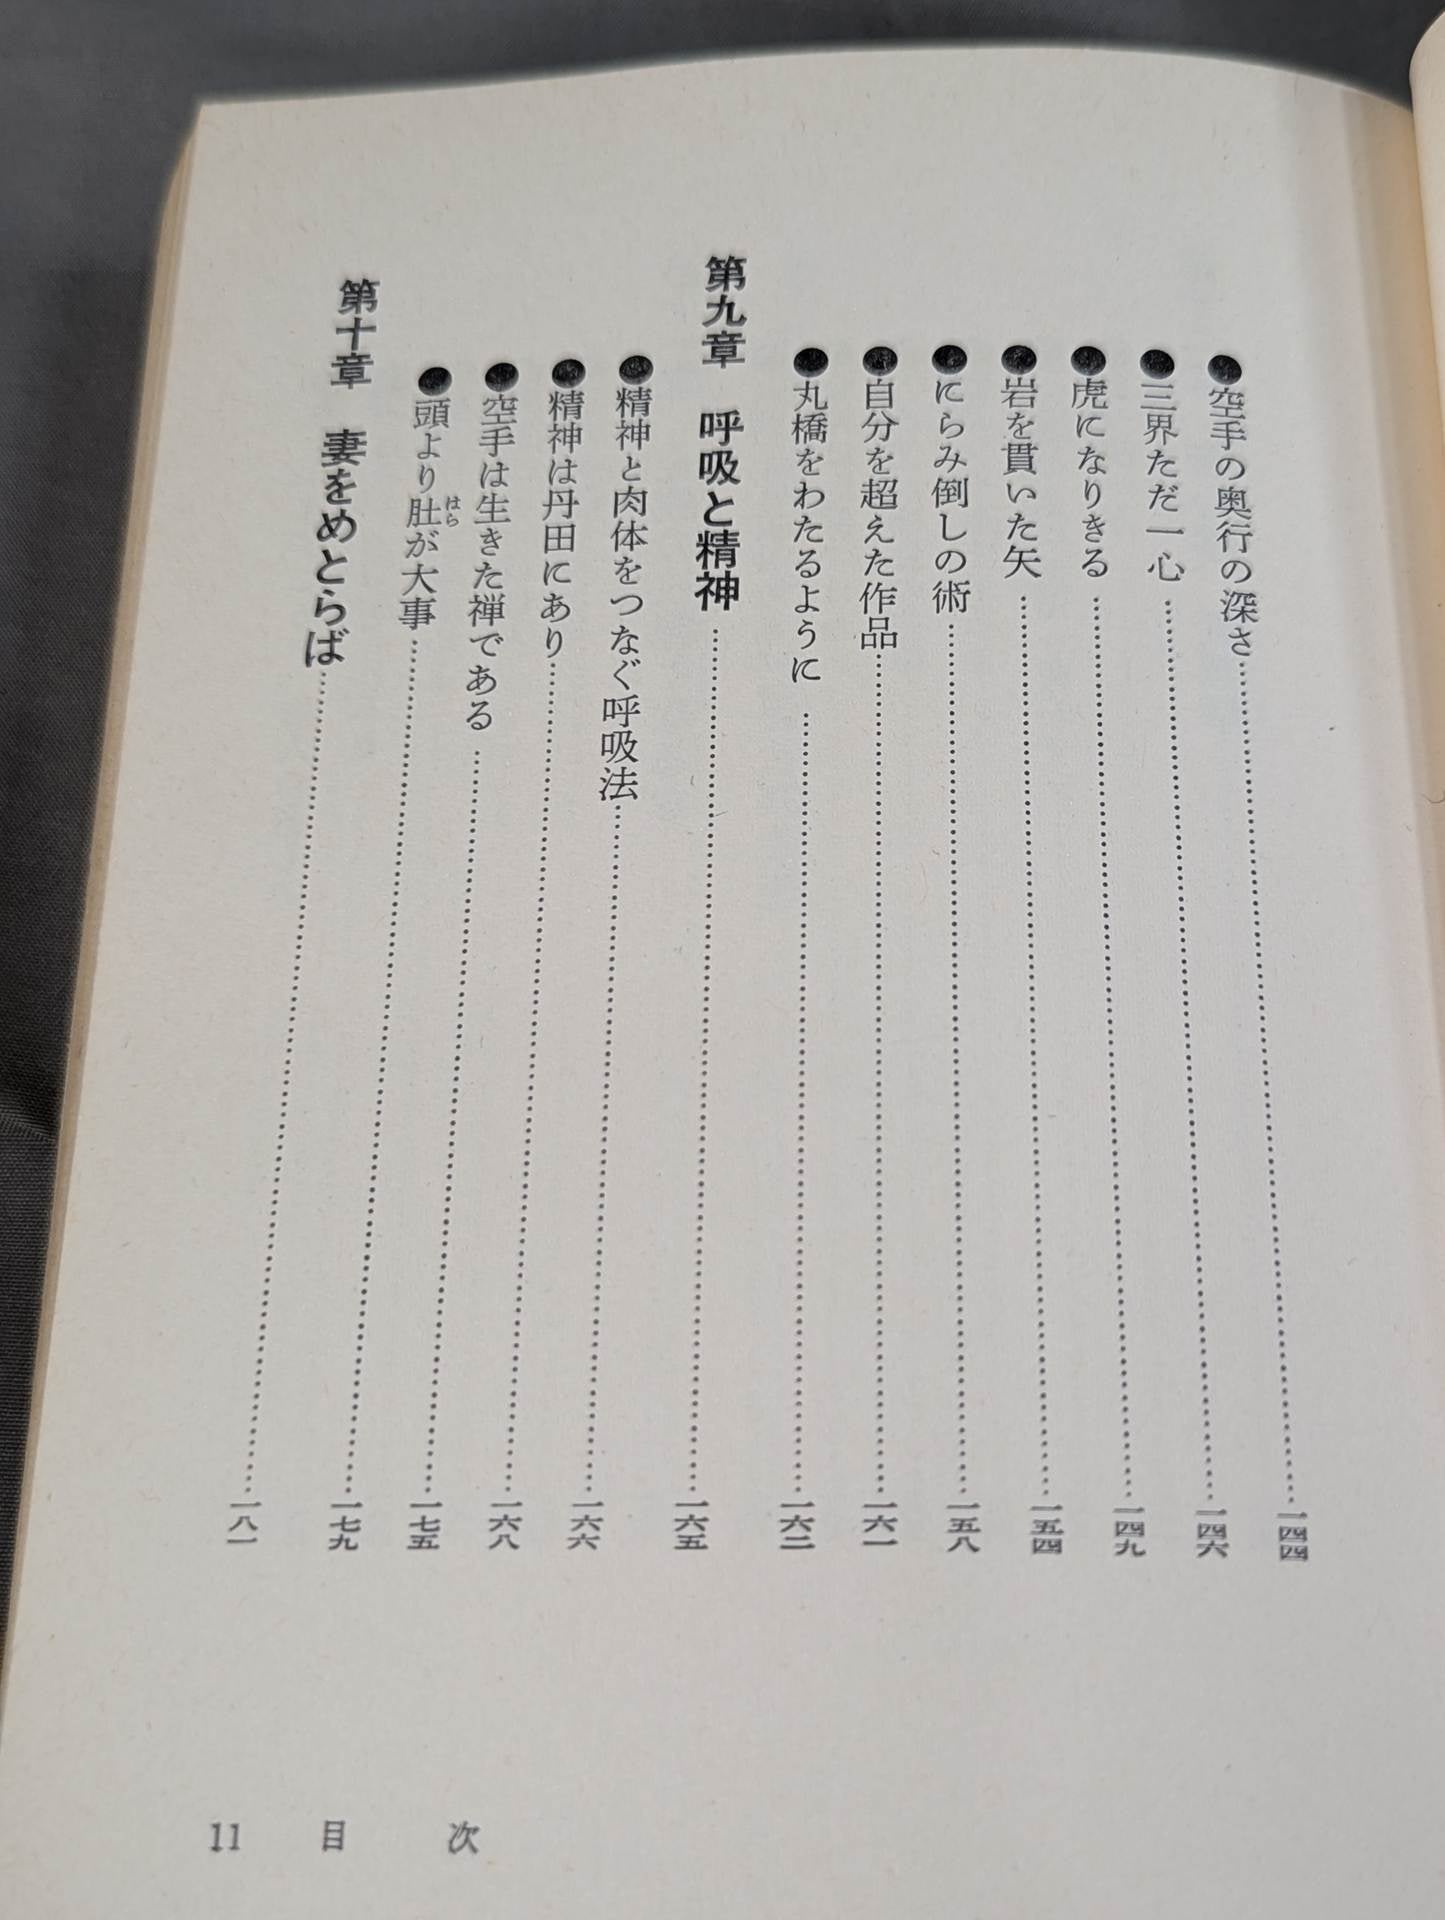 ●空手の奥行の深さ……一四四
●三界ただ一心……一四六
●虎になりきる……一四九
●岩を貫いた矢……一五四
●にらみ倒しの術……一五八
●自分を超えた作品……一六一
●丸橋をわたるように……一六二
第九章 呼吸と精神……一六五
●精神と肉体をつなぐ呼吸法……一六六
●精神は丹田にあり……一六八
●空手は生きた禅である……一七五
●頭より肚が大事……一七九
はら
第十章 妻をめとらば……一八一
11 目 次